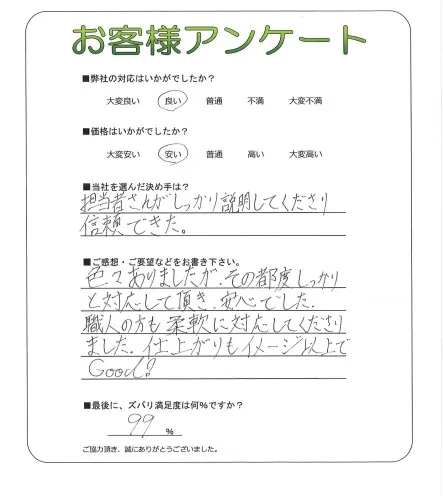 お客様アンケート
■弊社の対応はいかがでしたか？
大変良い 良い 普通 不満 大変不満
■価格はいかがでしたか？
大変安い 安い 普通 高い 大変高い
■当社を選んだ決め手は？
担当者さんがしっかり説明してくださり
信頼できた。
■ご感想・ご要望などをお書き下さい。
色々ありましたが、その都度しっかり
と対応して頂き、安心でした。
職人の方も柔軟に対応してくださり
ました。仕上がりもイメージ以上で
Good!
■最後に、ズバリ満足度は何%ですか？
99 %
ご協力頂き、誠にありがとうございました。